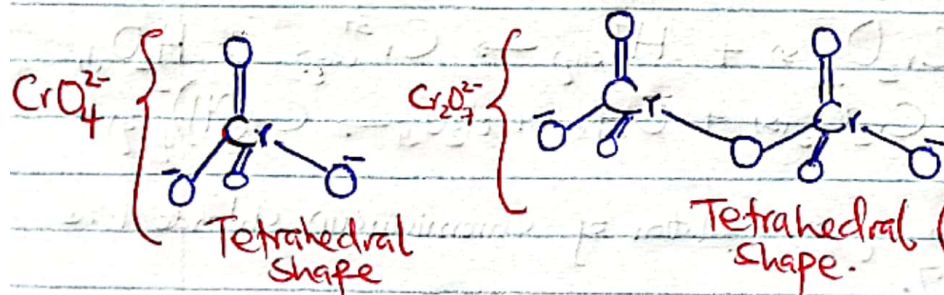 CrO₄²⁻
O
Cr
O⁻ O O⁻
Tetrahedral
shape
Cr₂O₇²⁻
O O
Cr Cr
O⁻ O O O O⁻
Tetrahedral (
shape.